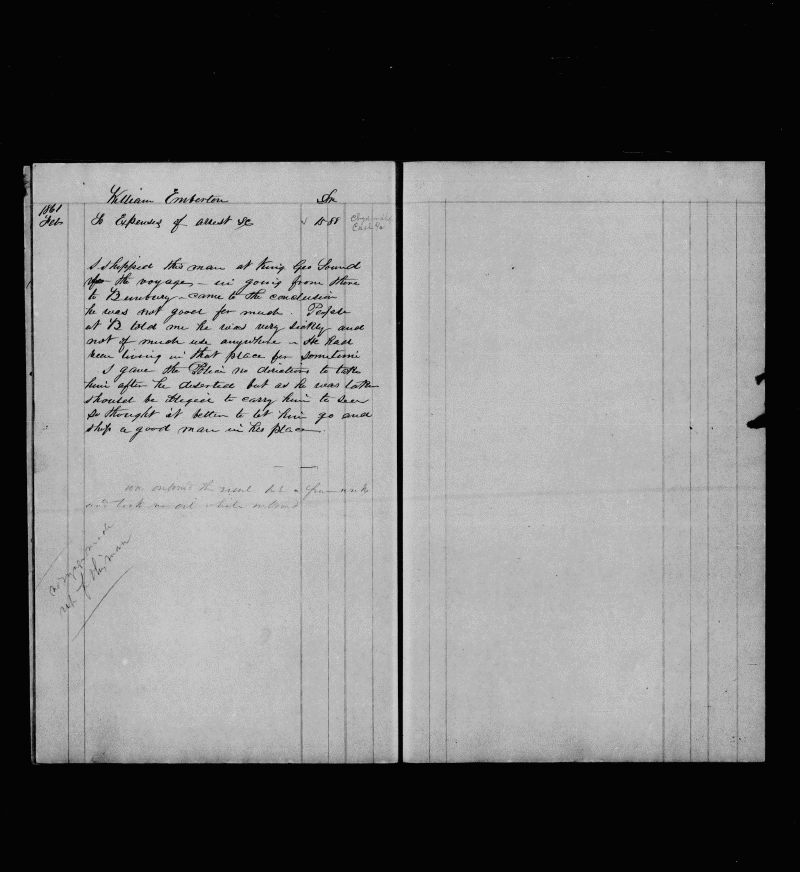 William Emberton Dr
1861
Feb To Expenses of arrest &c 15 88
I shipped this man at King Geo Sound
for the voyage, - in going from there
to Bunbury - came to the conclusion
he was not good for much. People
at B told me he was very sickly and
not of much use anywhere - He had
been living in that place for sometime
I gave the Police no directions to take
him after he deserted but as he was
should be to carry him to sea
So thought it better to let him go and
ship a good man in his place.
was onboard the vessel but a few weeks
and took no oil while onboard
of this man